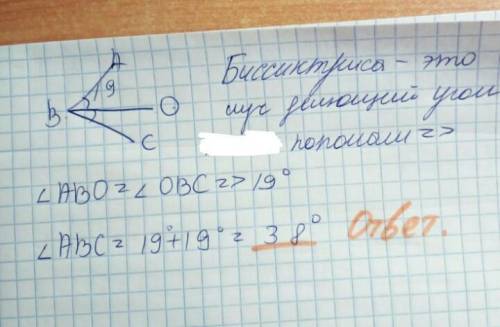 A
19
B
O
C
Биссиктриса - это
луч делющий угол
пополам =>
∠ABO = ∠OBC => 19°
∠ABC = 19° + 19° = 38° Ответ.